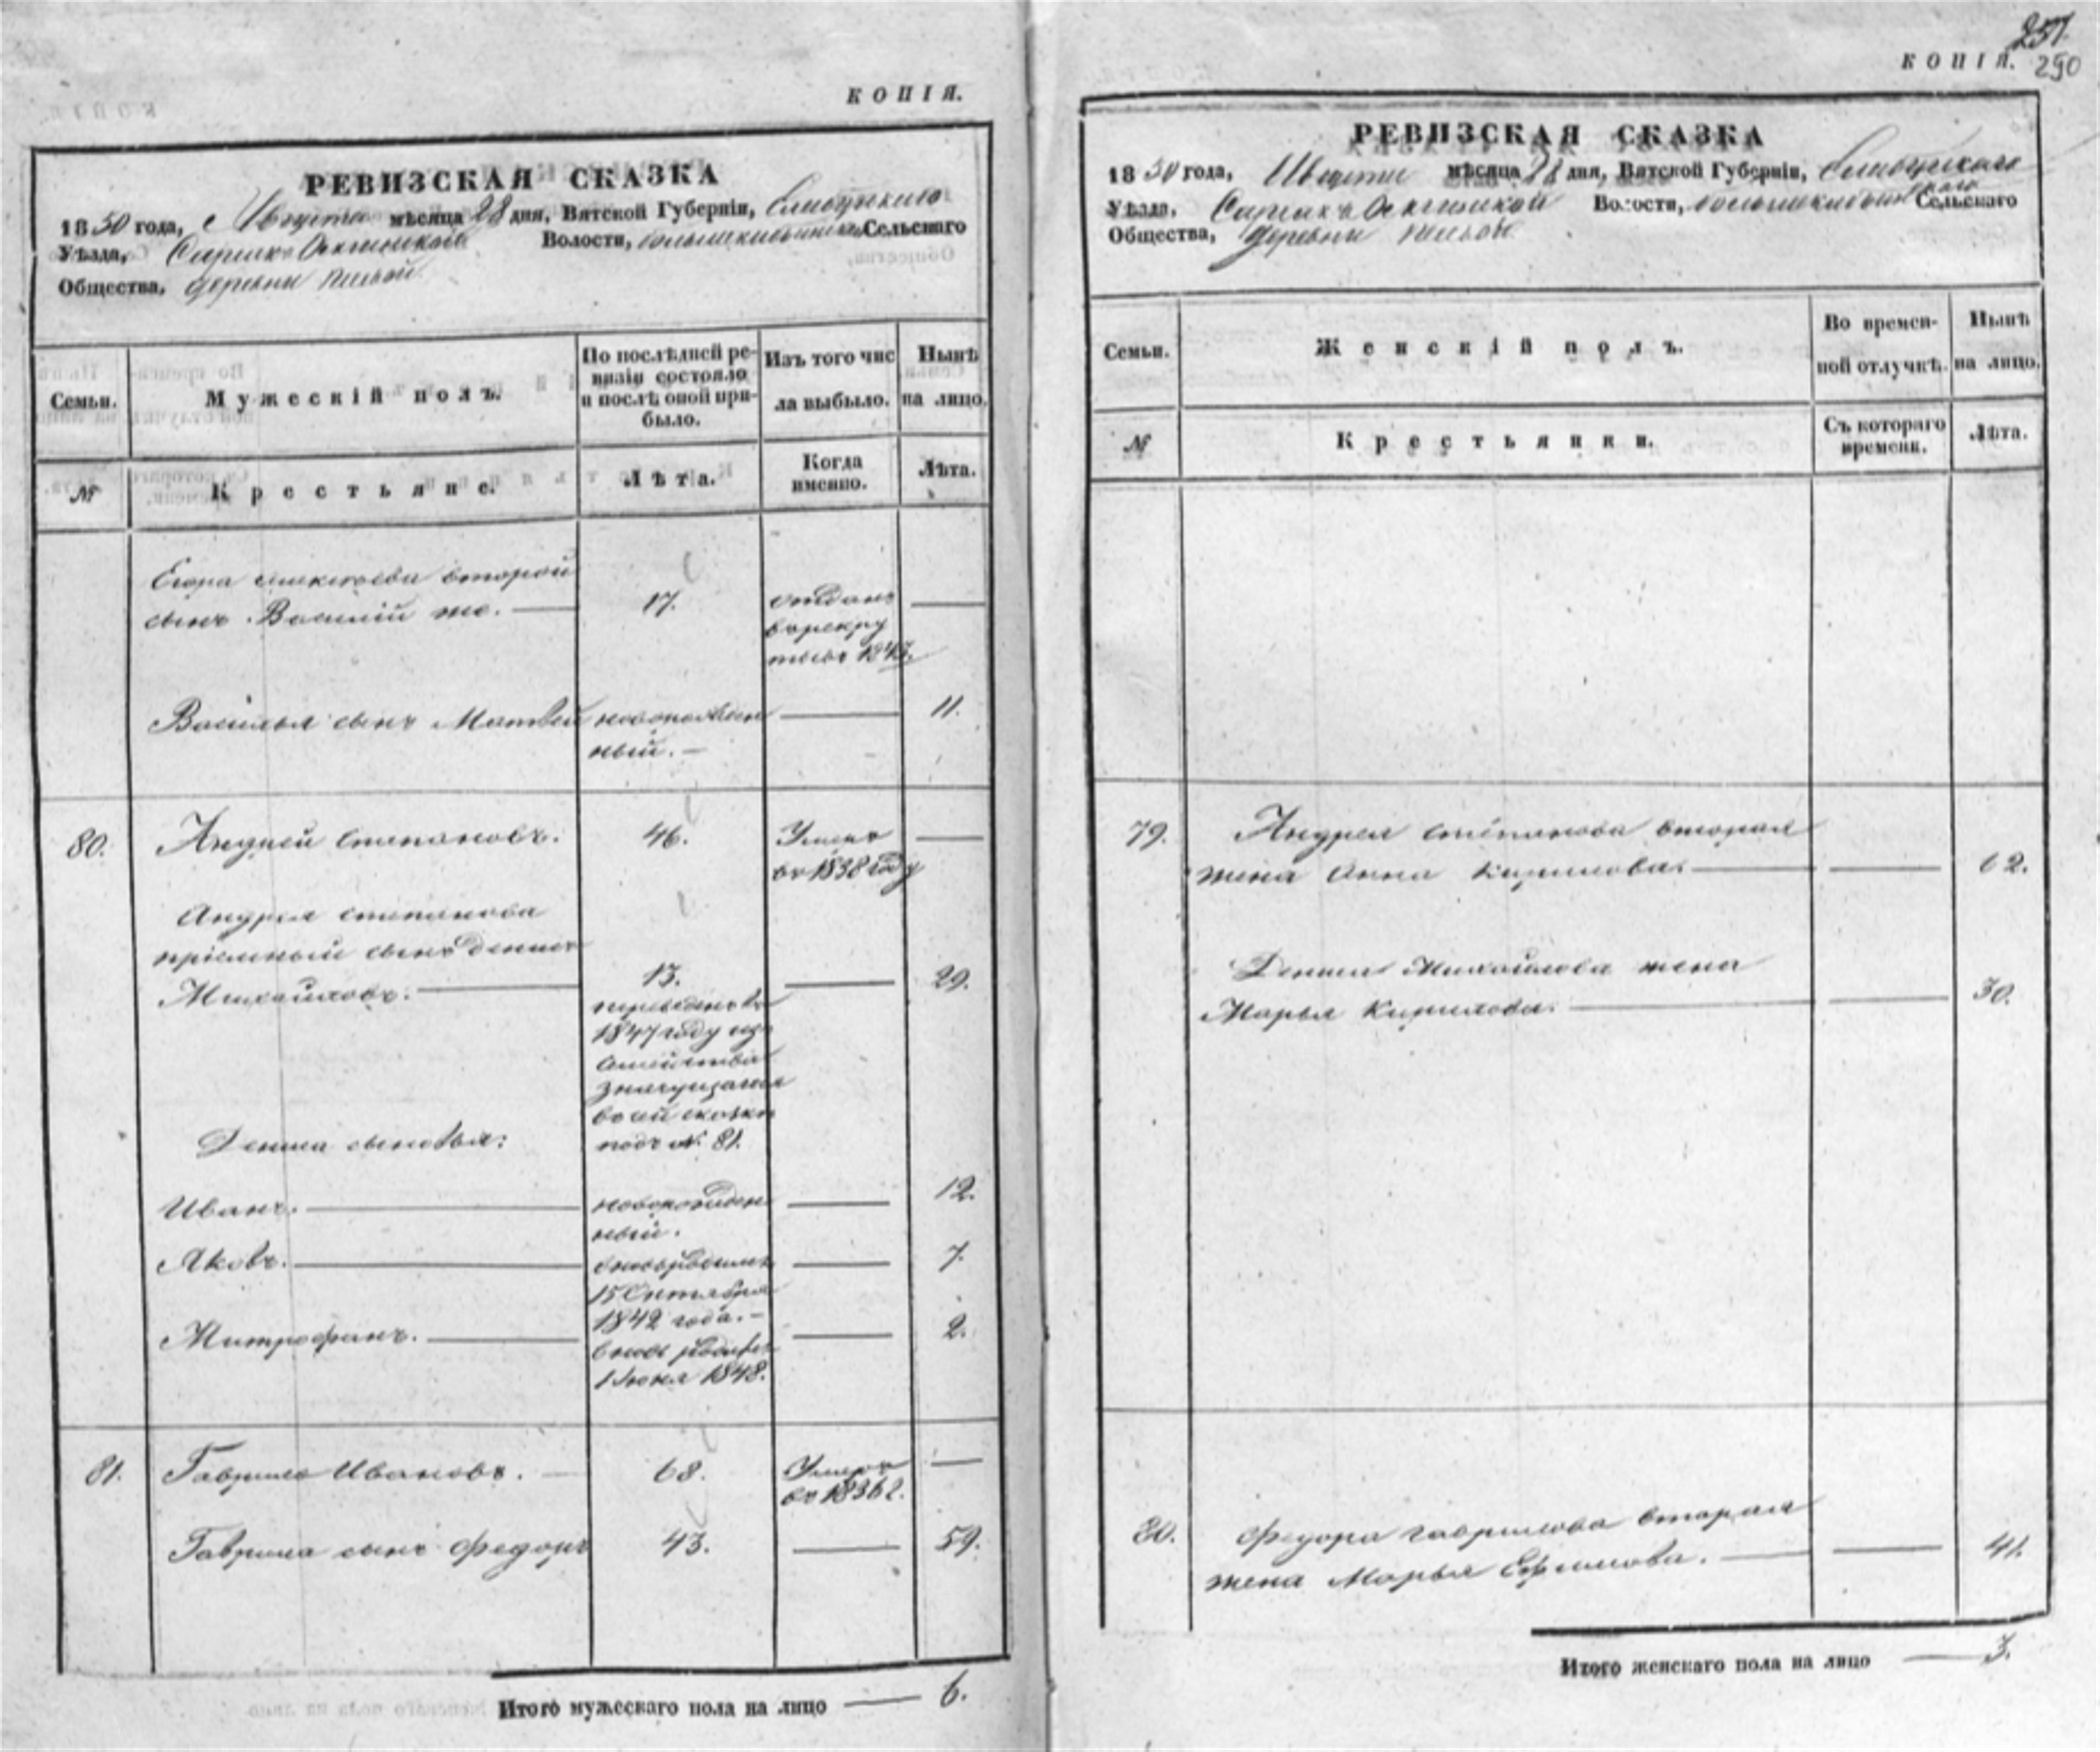 КОПІЯ.
РЕВИЗСКАЯ СКАЗКА
1850 года, Августа мѣсяца 28 дня, Вятской Губерніи,
Уѣзда, Волости, Сельскаго
Общества, деревни
Семьи.
Мужескій полъ.
По послѣдней ре-
визіи состояло
и послѣ оной при-
было.
Изъ того чис
ла выбыло.
Нынѣ
на лицо.
№
Крестьяне.
Лѣта.
Когда
именно.
Лѣта.
Егора второй
сынъ Василій же.
17.
отданъ
в рекру
Василья сынъ Матвей
новорожден
ный.
11.
80.
Андрей Степановъ.
46.
Умеръ
въ 1838 году
Андрея степанова
пріемный сынъ Денисъ
Михайловъ.
13.
29.
переведенъ в
1847 году из
семейства
в сей сказки
подъ №. 81.
Дениса сыновья:
Иванъ.
новорожден
ный.
12.
Яковъ.
вновьродился
15 Сентября
1842 года.
7.
Митрофанъ.
вновь родился
1 Июня 1848.
2.
81.
Гаврило Ивановъ.
68.
Умеръ
въ 1836 г.
Гаврила сынъ Федоръ
43.
59.
Итого мужескаго пола на лицо 6.
257.
КОПІЯ. 290
РЕВИЗСКАЯ СКАЗКА
1850 года, Августа мѣсяца 28 дня, Вятской Губерніи,
Уѣзда, Волости, Сельскаго
Общества, деревни
Семьи.
Женскій полъ.
Во времен-
ной отлучкѣ.
Нынѣ
на лицо.
№
Крестьянки.
Съ котораго
времени.
Лѣта.
79.
Андрея степанова вторая
жена Анна Кирилова.
62.
Дениса Михайлова жена
Марья Кирилова.
30.
80.
Федора гаврилова вторая
жена Марья Ефимова.
41.
Итого женскаго пола на лицо 3.